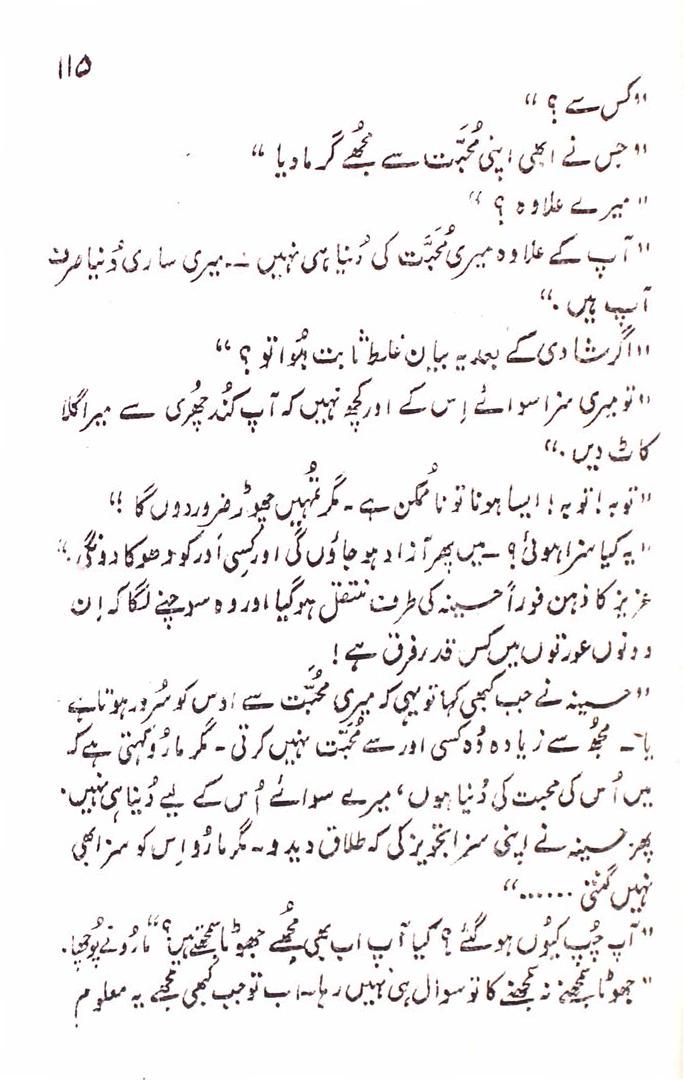 ۱۱۵
"کس سے ؟ "
"جس نے ابھی اپنی مُحبَّت سے مُجھے گرما دیا "
" میرے علاوہ ؟ "
"آپ کے علاوہ میری مُحَبَّت کی دُنیا ہی نہیں ــ میری ساری دُنیا صرف
آپ ہیں ۔"
"اگر شادی کے بعد یہ بیان غلط ثابت ہُوا تو ؟ "
"تو میری سزا سوائے اِس کے اور کچھ نہیں کہ آپ کُند چھُری سے میرا گلا
کاٹ دیں ۔"
"توبہ ! توبہ ! ایسا ہونا تو نا مُمکن ہے ۔ مگر تُمہیں چھوڑ ضرور دوں گا !"
"یہ کیا سزا ہوئی ؟ ــ میں پھر آزاد ہو جاؤں گی اور کسی اَور کو دھوکا دونگی ۔"
عزیز کا ذہن فوراً حسینہ کی طرف منتقل ہو گیا اور وہ سوچنے لگا کہ اِن
دونوں عورتوں میں کس قدر فرق ہے !
"حسینہ نے جب کبھی کہا تو یہی کہ میری مُحبَّت سے اوس کو سُرور ہوتا ہے
یا ــ مجھُ سے زیادہ وُہ کسی اور سے مُحبَّت نہیں کرتی ۔ مگر مارُو کہتی ہے کہ
میں اُس کی محبت کی دُنیا ہوں ، میرے سوائے اُس کے لیے دُنیا ہی نہیں ۔
پھر حسینہ نے اپنی سزا تجویز کی کہ طلاق دیدو ــ مگر مارُو اِس کو سزا بھی
نہیں گنتی ......"
"آپ چُپ کیُوں ہو گئے ؟ کیا آپ اب بھی مُجھے جھوٹا سمجھتے ہیں ؟" مارُو نے پُوچھا ۔
"جھوٹا سمجھنے نہ سمجھنے کا تو سوال ہی نہیں رہا ــ اب تو جب کبھی مجھے یہ معلوم